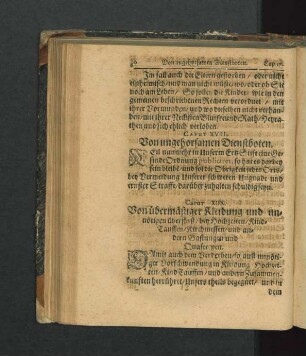 Von ungehorsamen Dienstboten. Cap
Im fall auch die Eltern gestorben / oder nicht
einheimisch / und man nicht wüste / wo / oder ob Sie
noch am Leben / So sollen die Kinder / wie in den
gemeinen beschriebenen Rechten verordnet / mit
ihrer Vormunden / und wo dieselben nicht verhan-
den / mit ihrer Nechsten Blutfreund Rath / Heyra-
then und sich ehlich verloben.
CAPUT XVII.
Von ungehorsamen Dienstboten.
Weil nunmehr in Unserm Ertz-Stifft eine Ge-
sinde Ordnung publiciret, so hat es dabey
sein bleibe / und soll die Obrigkeit jedes Orts /
bey Vermeidung Unserer schweren Ungnade und
ernster Straffe / darüber zuhalten schuldig seyn.
CAPUT XIIX.
Von übermäßiger Kleidung und un-
nötigen Uberfluß / bey Hochzeiten / Kind-
Tauffen / Kirchmessen / und an-
dern Gastungen und
Damit auch dem Verderben / so auß unnöti-
ger Vorschwendung in Kleidung / Hochzei-
ten / Kind Tauffen / und andern Zusammen-
kunfften herrühret / Unsers theils begegnet / und in
dem